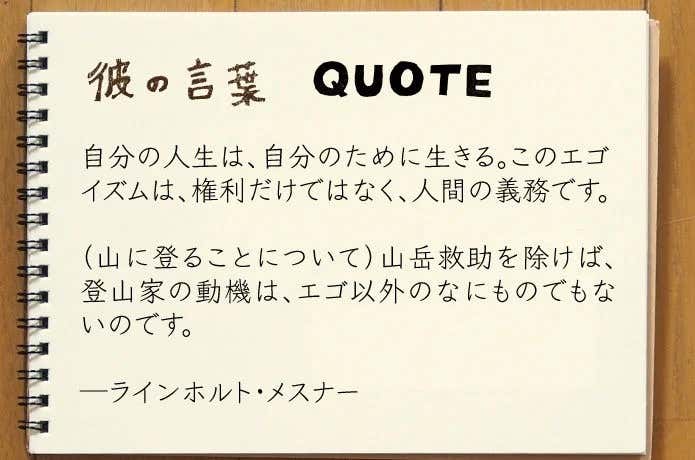 彼の言葉 QUOTE
自分の人生は、自分のために生きる。このエゴ
イズムは、権利だけではなく、人間の義務です。
（山に登ることについて）山岳救助を除けば、
登山家の動機は、エゴ以外のなにものでもな
いのです。
―ラインホルト・メスナー